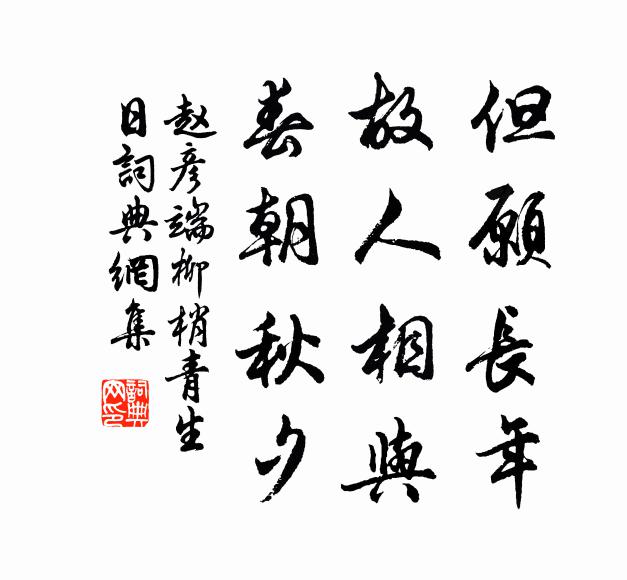 但願長年
故人相與
春朝秋夕
赵彥端柳梢青生
日詞典網集
詞典
网印